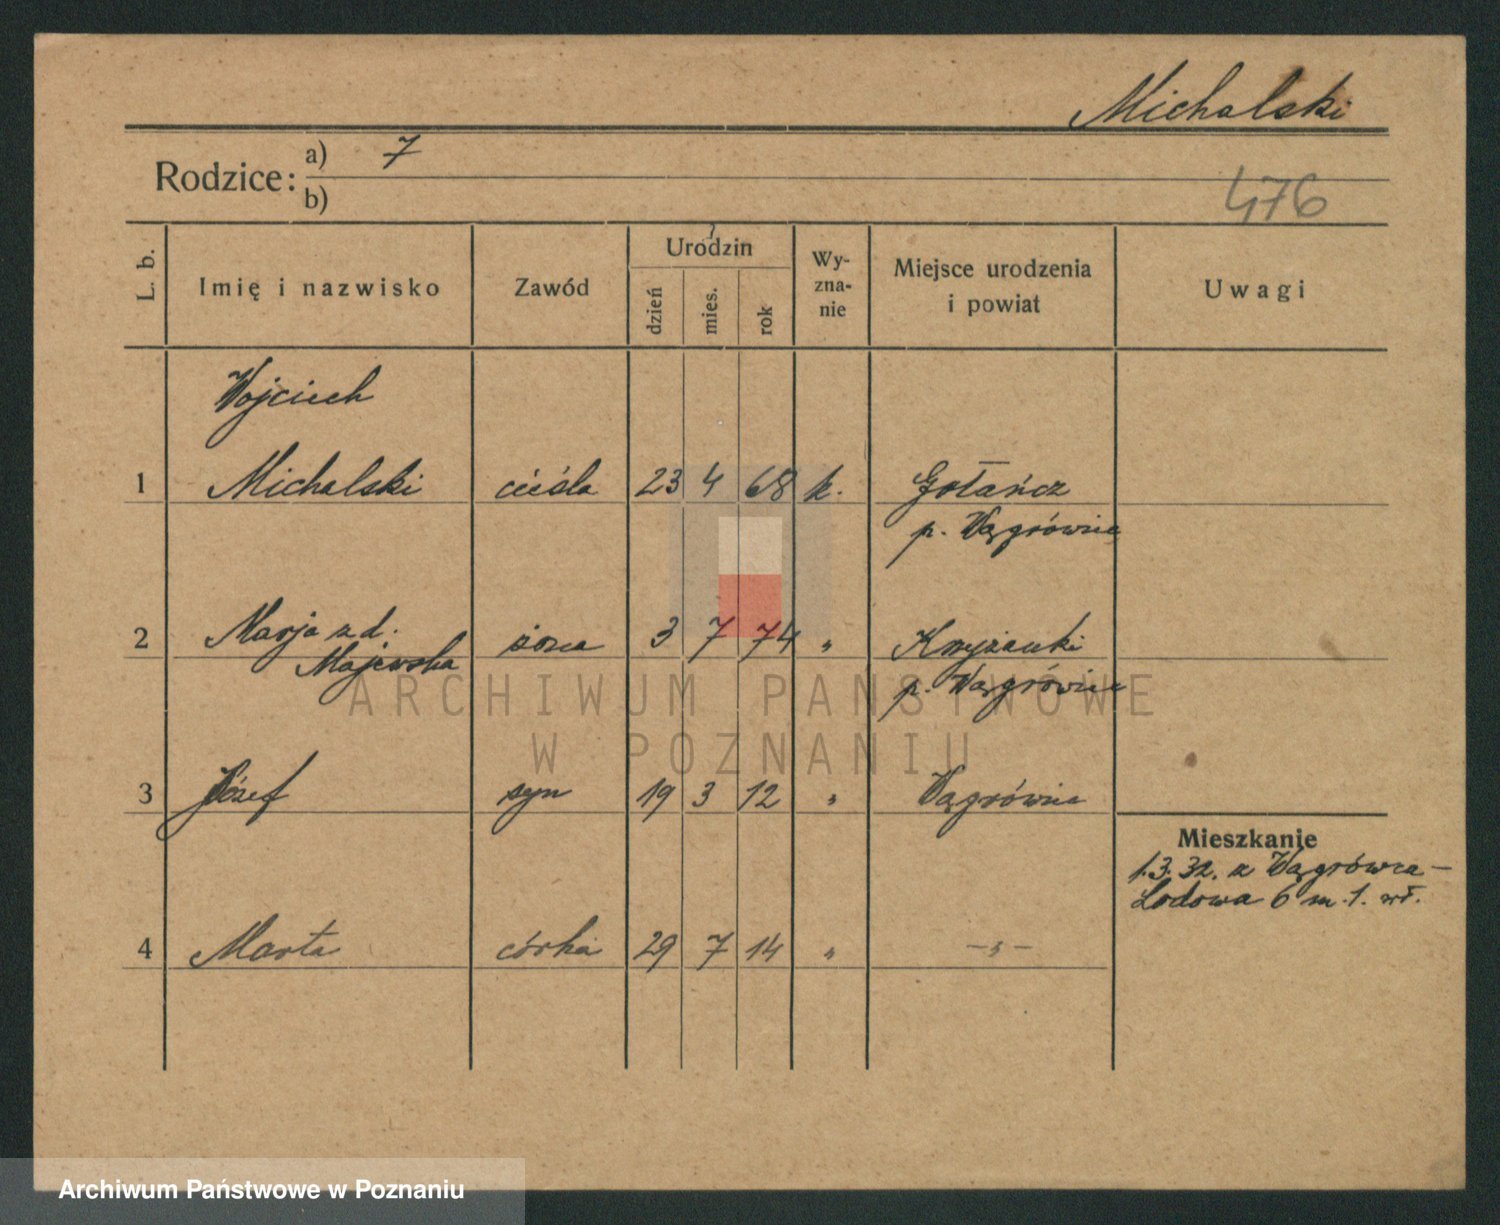 Michalski
Rodzice: a) 7
b)
476
L. b. Imię i nazwisko Zawód Urodzin dzień mies. rok Wy-zna-nie Miejsce urodzenia i powiat Uwagi
Wojciech
1 Michalski cieśla 23 4 68 k. Gołańcz
p. Wągrówiec
2 Marja z d. żona 3 7 74 " Krzyżanki
Majewska
p. Wągrówiec
ARCHIWUM PAŃSTWOWE
W POZNANIU
3 Józef syn 19 3 12 " Wągrówiec
Mieszkanie
1.3.32. z Wągrówca –
Lodowa 6 m. 1. wł.
4 Marta córka 29 7 14 " – " –
Archiwum Państwowe w Poznaniu